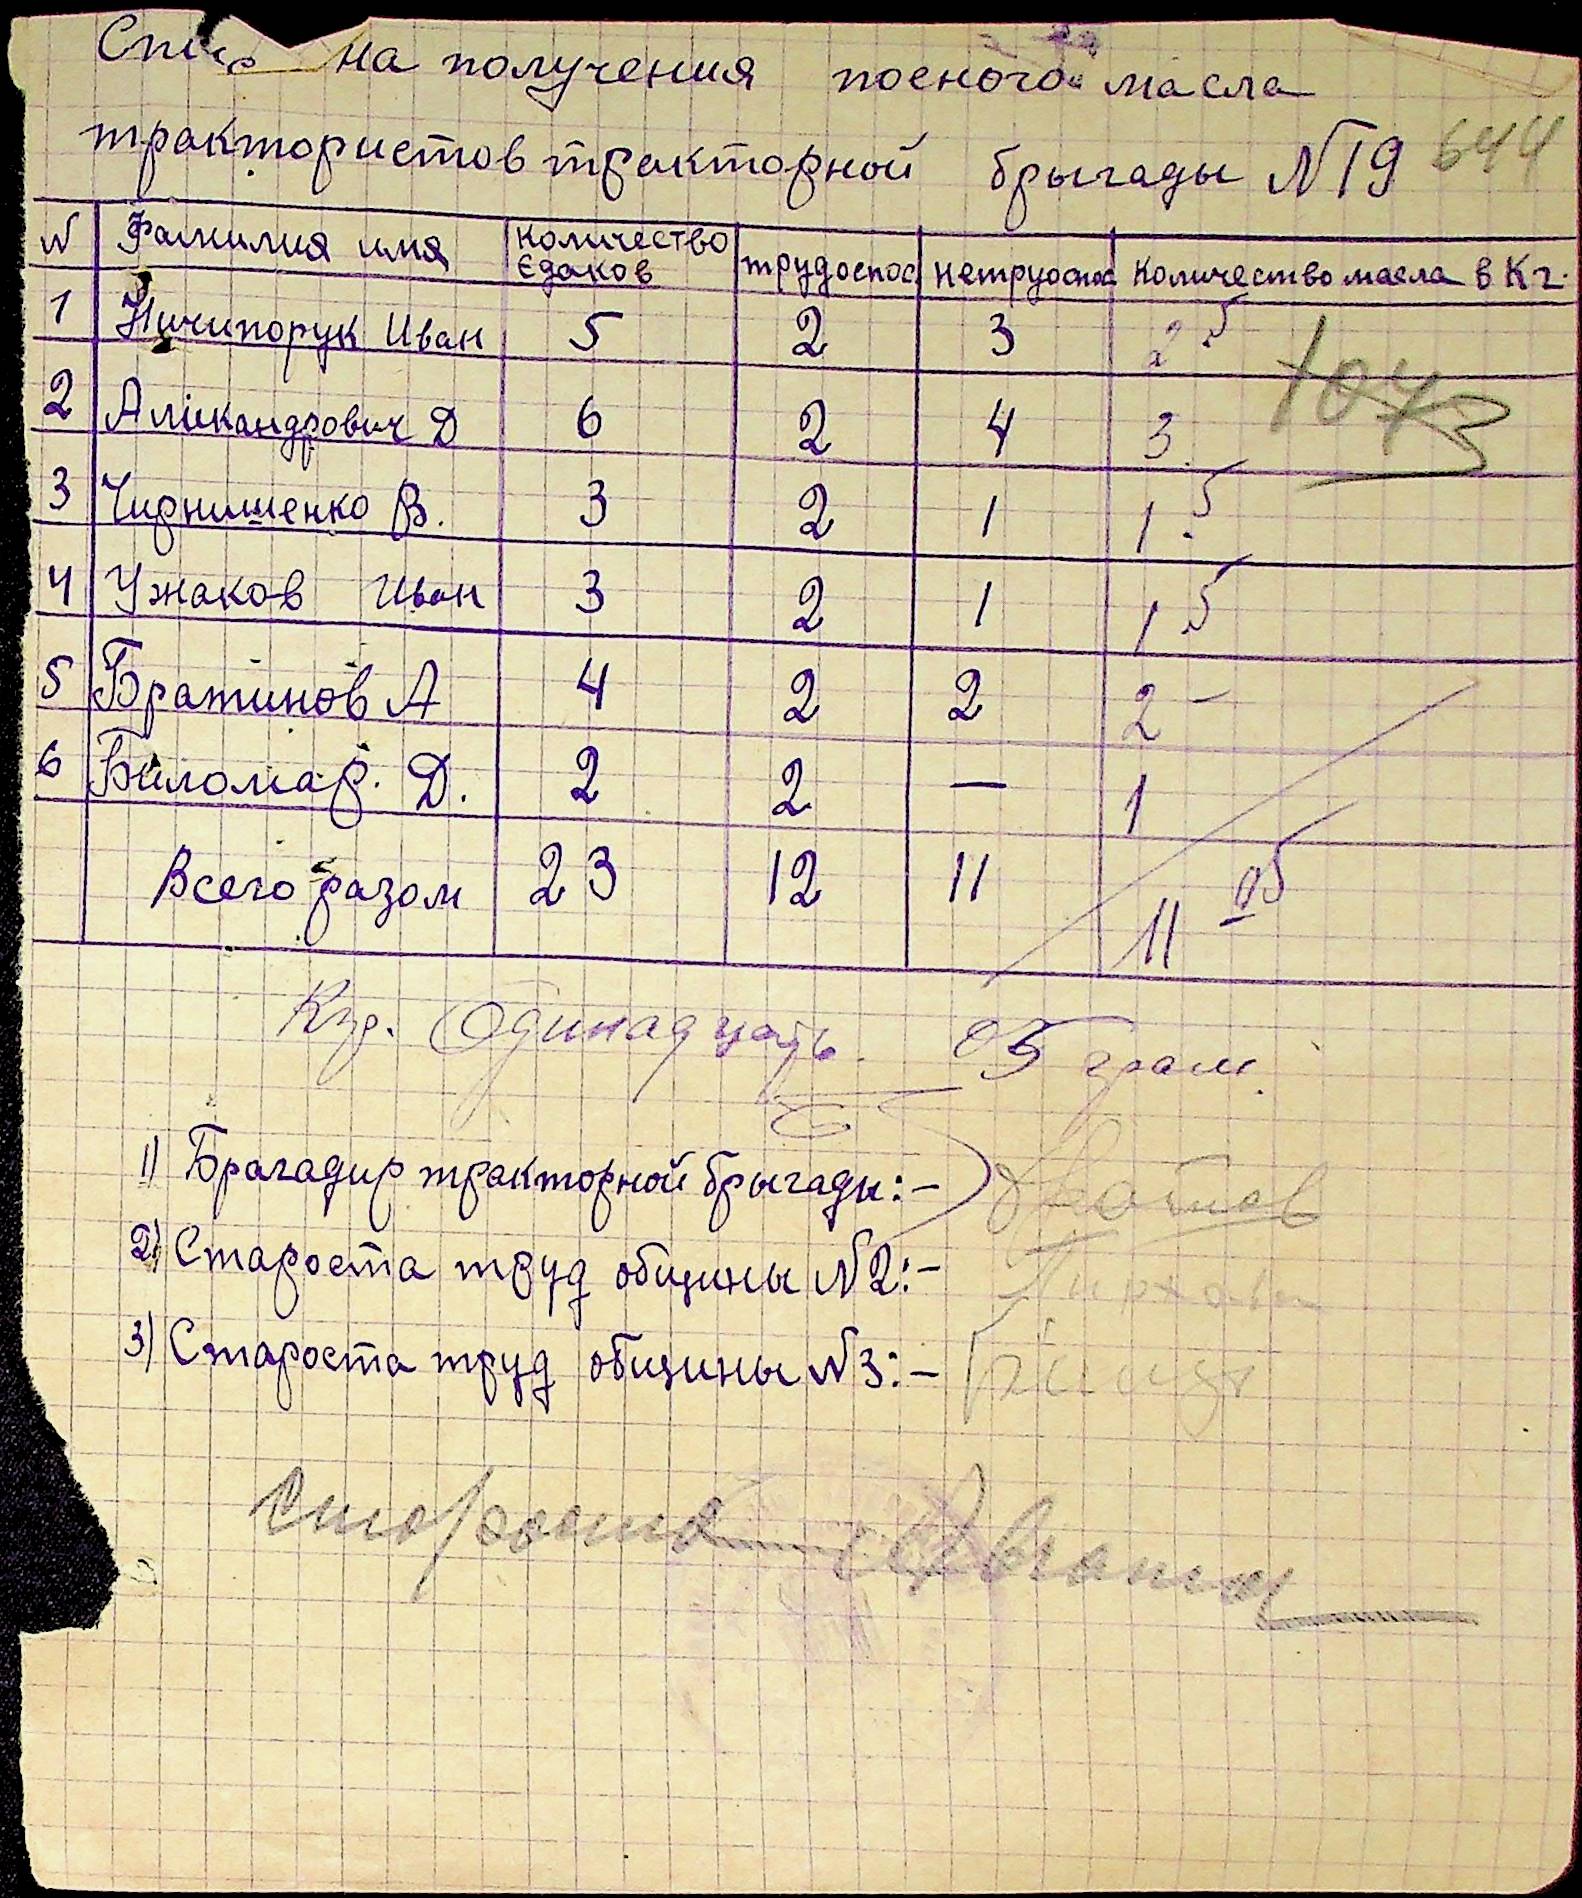 на получения посного масла
трактористов тракторной брыгады N19 644
N Фамилия имя количество Єдаков трудоспос нетрудспос Количество масла в Кг.
1 Ничипорук Иван 5 2 3 2.5
2 Алікандрович Д 6 2 4 3
3 Чирнишенко В. 3 2 1 1.5
4 Ужаков Иван 3 2 1 1.5
5 Братинов А 4 2 2 2 –
6 Биломар. Д. 2 2 — 1
Всего разом 23 12 11 11 05
Кгр. Одинадцать 05 грам.
1) Брагадир тракторной брыгады:–
2) Староста труд общины N2:–
3) Староста труд общины N3:–
Староста